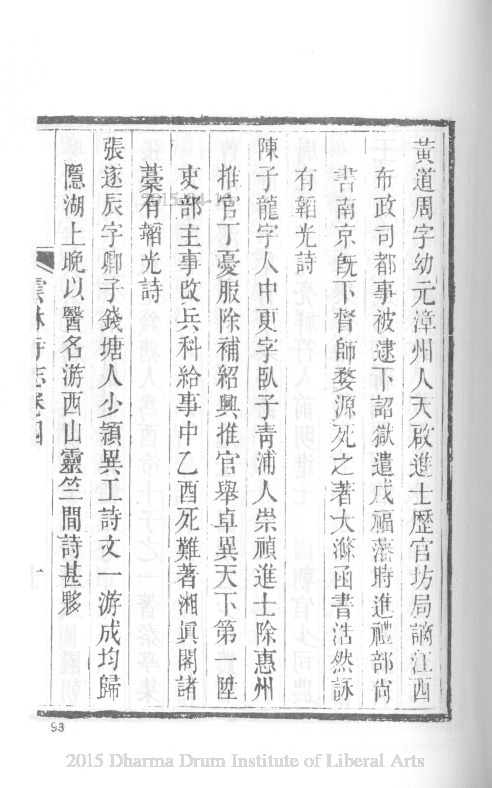 黃道周字幼元漳州人天啟進士歷官坊局謫江西
布政司都事被逮下詔獄遣戍福藩時進禮部尚
書南京旣下督師婺源死之著大滌函書浩然詠
有韜光詩
陳子龍字人中更字臥子靑浦人崇禎進士除惠州
推官丁憂服除補紹興推官舉卓異天下第一陞
吏部主事改兵科給事中乙酉死難著湘眞閣諸
藁有韜光詩
張遂辰字卿子錢塘人少穎異工詩文一游成均歸
隱湖上晚以醫名游西山靈竺間詩甚夥
雲林寺志卷四
93
2015 Dharma Drum Institute of Liberal Arts